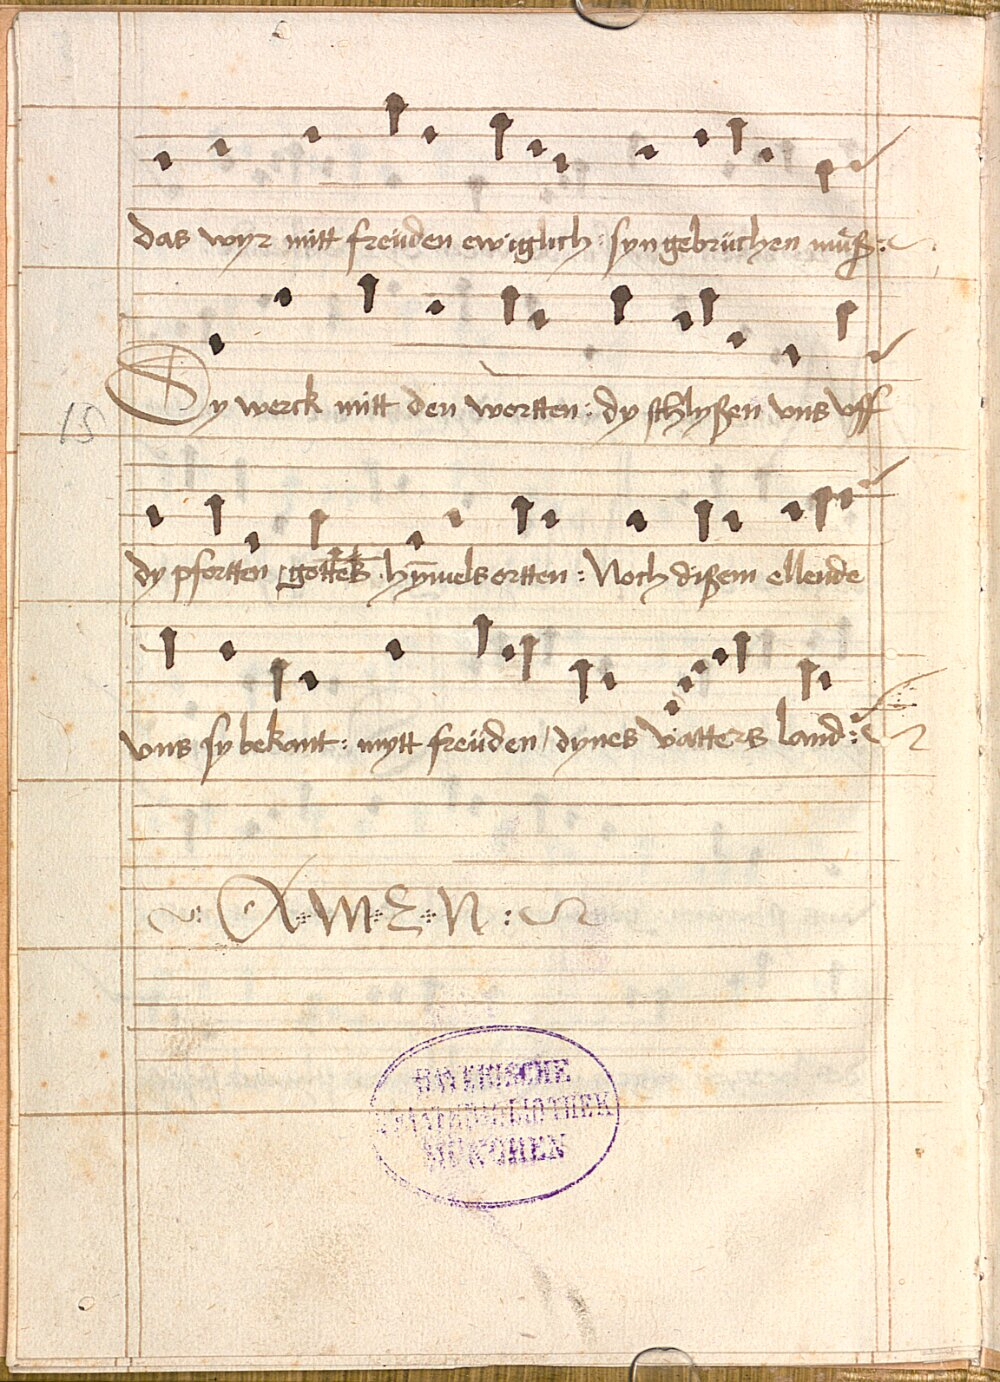 das wyr mitt freüden ewiglich : syn gebrüchen müß :
Dy werck mitt den wortten : dy schlyßen vns vff
15
dy pfortten gottes hym̄els ortten : Noch dißem ellende
vns sy bekant : mytt freüden / dynes vatters land :
A·M·E·N :
BAYERISCHE
STAATSBIBLIOTHEK
MÜNCHEN